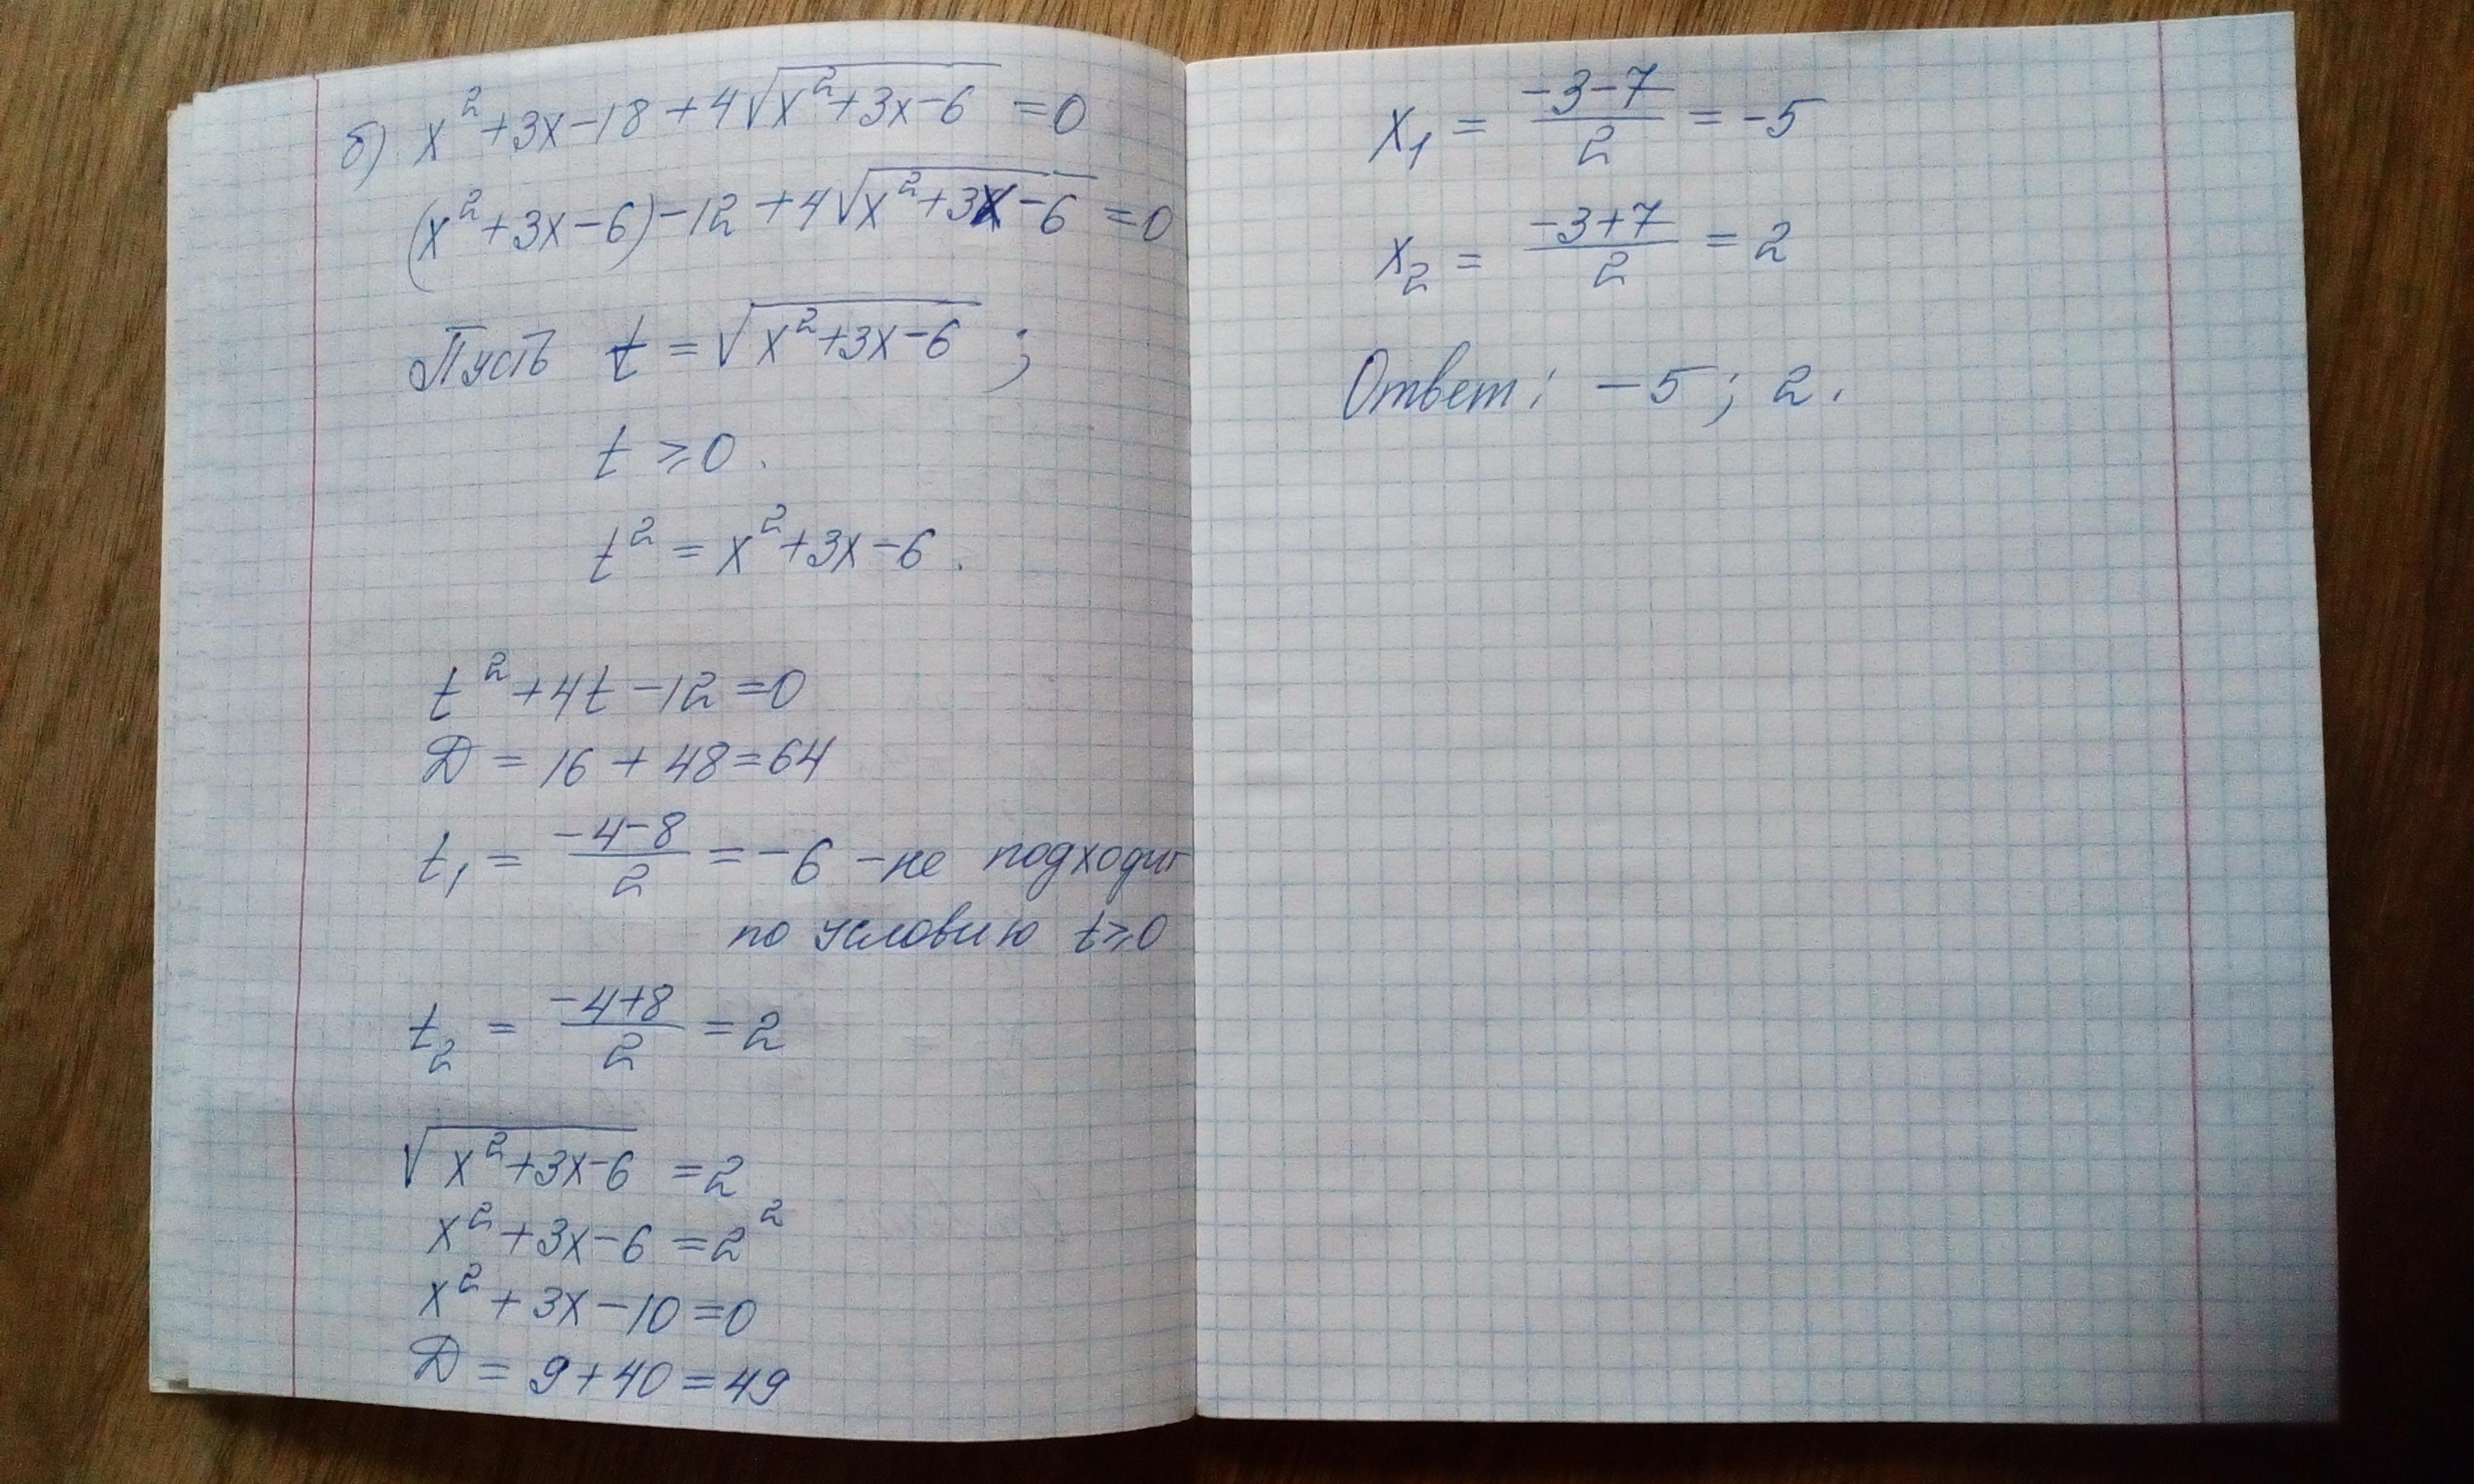 б) x²+3x-18+4√(x²+3x-6) =0
(x²+3x-6)-12+4√(x²+3x-6) =0
Пусть t = √(x²+3x-6) ;
t ≥0.
t² = x²+3x-6.
t²+4t-12=0
D = 16 + 48=64
t₁ = (-4-8)/2 = -6 - не подходит
по условию t≥0
t₂ = (-4+8)/2 = 2
√(x²+3x-6) =2
x²+3x-6 =2²
x²+3x-10=0
D = 9+40=49
x₁ = (-3-7)/2 = -5
x₂ = (-3+7)/2 = 2
Ответ: -5; 2.